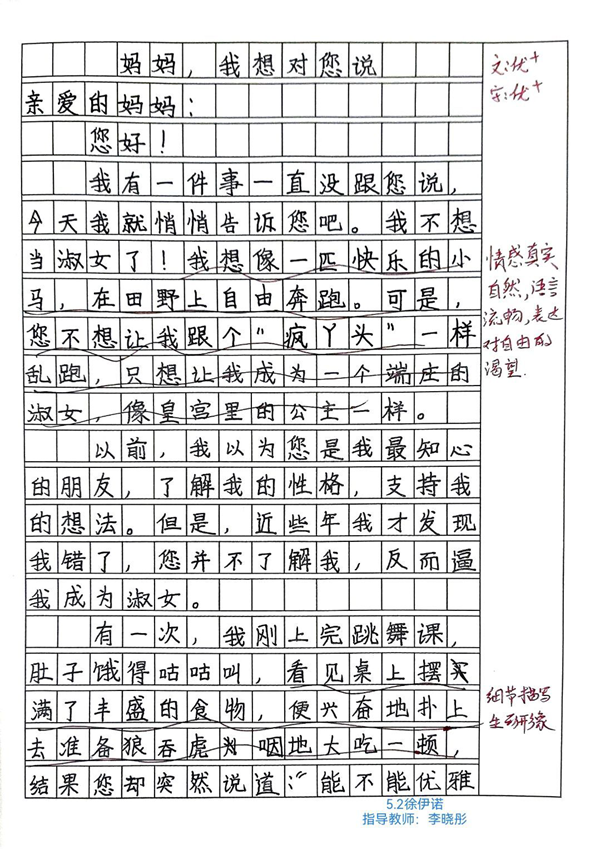 妈妈，我想对您说
文：优+
字：优+
亲爱的妈妈：
您好！
我有一件事一直没跟您说，
今天我就悄悄告诉您吧。我不想
当淑女了！我想像一匹快乐的小
马，在田野上自由奔跑。可是，
您不想让我跟个“疯丫头”一样
乱跑，只想让我成为一个端庄的
淑女，像皇宫里的公主一样。
情感真实
自然，语言
流畅，表达
对自由的
渴望.
以前，我以为您是我最知心
的朋友，了解我的性格，支持我
的想法。但是，近些年我才发现
我错了，您并不了解我，反而逼
我成为淑女。
有一次，我刚上完跳舞课，
肚子饿得咕咕叫，看见桌上摆
满了丰盛的食物，便兴奋地扑上
去准备狼吞虎咽地大吃一顿，
结果您却突然说道：“能不能优雅
细节描写
生动形象
5.2徐伊诺
指导教师：李晓彤